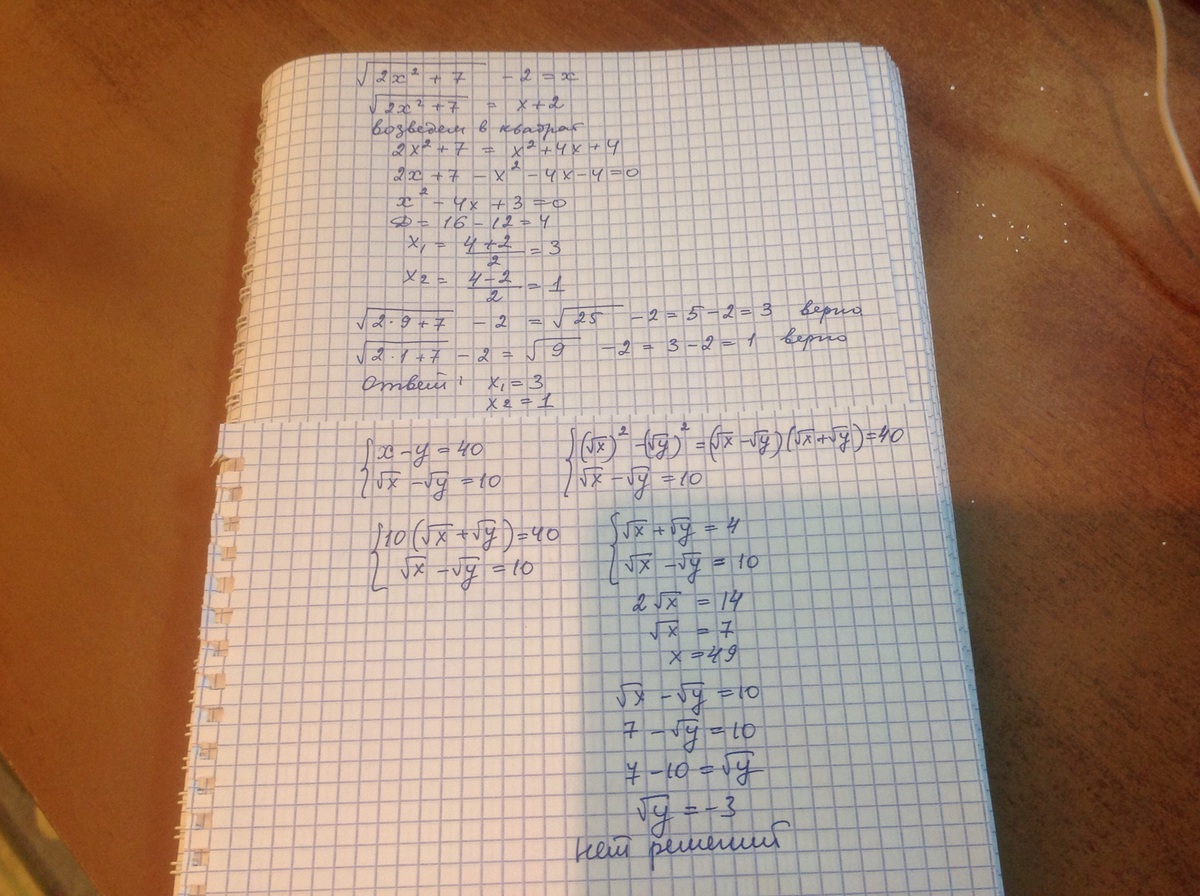 √(2x² + 7) - 2 = x
√(2x² + 7) = x + 2
возведем в квадрат
2x² + 7 = x² + 4x + 4
2x + 7 - x² - 4x - 4 = 0
x² - 4x + 3 = 0
D = 16 - 12 = 4
x₁ = (4 + 2)/2 = 3
x₂ = (4 - 2)/2 = 1
√(2·9 + 7) - 2 = √25 - 2 = 5 - 2 = 3 верно
√(2·1 + 7) - 2 = √9 - 2 = 3 - 2 = 1 верно
Ответ: x₁ = 3
x₂ = 1
{ x - y = 40
√x - √y = 10
{ (√x)² - (√y)² = (√x - √y)(√x + √y) = 40
√x - √y = 10
{ 10(√x + √y) = 40
√x - √y = 10
{ √x + √y = 4
√x - √y = 10
2√x = 14
√x = 7
x = 49
√x - √y = 10
7 - √y = 10
7 - 10 = √y
√y = -3
нет решений